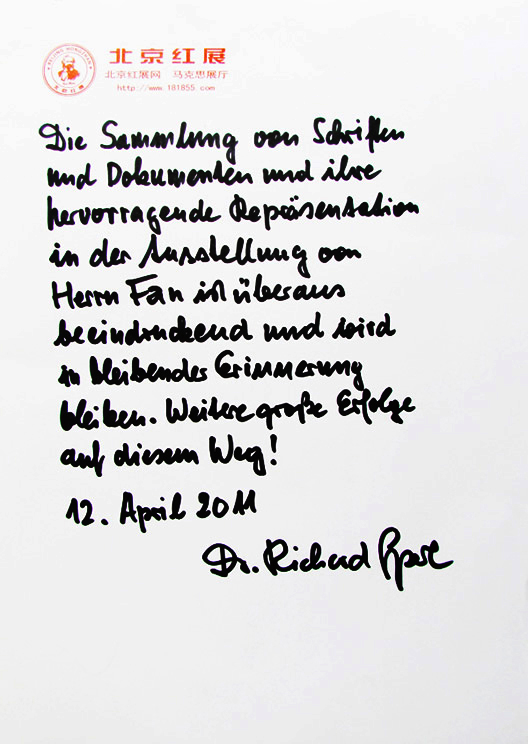 北京红展
北京红展网 马克思展厅
http://www.181855.com
Die Sammlung von Schriften
und Dokumenten und ihre
hervorragende Repräsentation
in der Ausstellung von
Herrn Fan ist überaus
beeindruckend und wird
in bleibender Erinnerung
bleiben. Weitere große Erfolge
auf diesem Weg!
12. April 2011
Dr. Richard